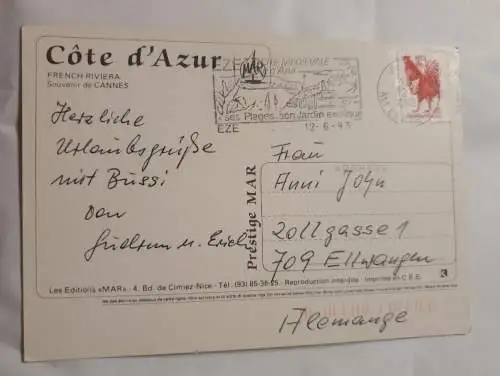 Côte d'Azur
FRENCH RIVIERA
Souvenir de CANNES
MAR
EZE
ses Plages, son Jardin exotique
EZE
12-6-93
Herzliche
Urlaubsgrüße
mit Bussi
von
Gudrun u. Erich
Prestige MAR
Frau
Anni John
Zollgasse 1
709 Ellwangen
Allemange
Les Editions «MAR» - 4, Bd. de Cimiez-Nice - Tél. (93) 85-38-25 - Reproduction interdite - Imprimé en C.E.E.